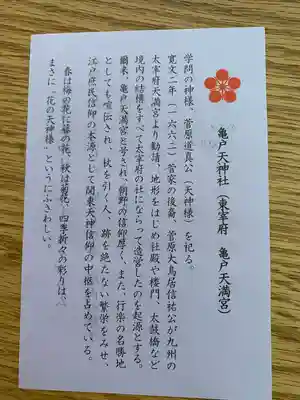 亀戸天神社（東宰府　亀戸天満宮）
学問の神様、菅原道真公（天神様）を祀る。
寛文二年（一六六二）菅家の後裔、菅原大鳥居信祐公が九州の
太宰府天満宮より勧請、地形をはじめ社殿や楼門、太鼓橋など
境内の結構をすべて太宰府の社にならって造営したのを起源とする。
爾来、亀戸天満宮と号され、朝野の信仰厚く、また、行楽の名勝地
としても喧伝され、杖を引く人、跡を絶たない繁栄をみせ、
江戸庶民信仰の本源として関東天神信仰の中枢を占めている。
春は梅の花に藤の花、秋は菊花、四季折々の彩りは、
まさに「花の天神様」というにふさわしい。